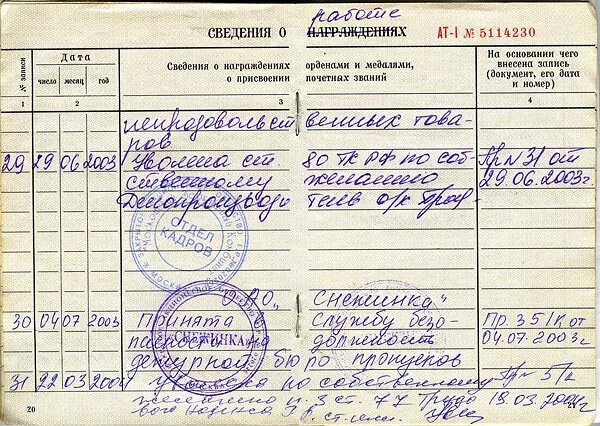 работе
СВЕДЕНИЯ О НАГРАЖДЕНИЯХ АТ-I № 5114230
№ записи
Дата
число месяц год
Сведения о награждениях орденами и медалями,
о присвоении почетных званий
На основании чего внесена запись (документ, его дата и номер)
1 2 3 4
непродовольственных това-
ров
29 29 06 2003 Уволена ст 80 ТК РФ по соб- Пр N 31 от
ственному желанию 29.06.2003г.
Делопроизводитель о/к
ОТДЕЛ КАДРОВ
"Снежинка"
30 04 07 2003 Принята службу безо- Пр. 35/К от
на должность 04.07.2003г
СНЕЖИНКА
дежурной бюро пропусков
31 22 03 2004 Уволена по собственному Пр 5/к
желанию п. 3 ст. 77 Трудо 18.03.2004г
вого Кодекса
20 21